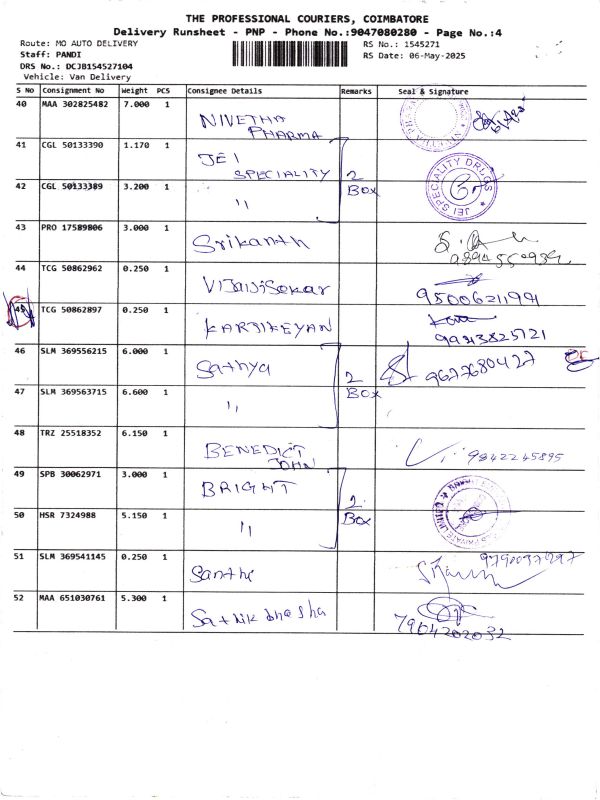 THE PROFESSIONAL COURIERS, COIMBATORE
Delivery Runsheet - PNP - Phone No.:9047080280 - Page No.:4
Route: MO AUTO DELIVERY
RS No.: 1545271
Staff: PANDI
RS Date: 06-May-2025
DRS No.: DCJB154527104
Vehicle: Van Delivery
S No Consignment No Weight PCS Consignee Details Remarks Seal & Signature
40 MAA 302825482 7.000 1 NIVETHA
PHARMA
41 CGL 50133390 1.170 1 JEI
SPECIALITY 2
Box JEI SPECIALITY DRUGS
42 CGL 50133389 3.200 1 "
43 PRO 17589806 3.000 1 Srikanth
44 TCG 50862962 0.250 1 9500621191
45 TCG 50862897 0.250 1 KARTIKEYAN 9943825721
46 SLM 369556215 6.000 1 Sathya 2
Box 9677680427
47 SLM 369563715 6.600 1 "
48 TRZ 25518352 6.150 1 BENEDICT
JOHN 9842245895
49 SPB 30062971 3.000 1 BRIGHT 2
Box
50 HSR 7324988 5.150 1 "
51 SLM 369541145 0.250 1 Santhi
52 MAA 651030761 5.300 1 Sathik bhasha
7904202032